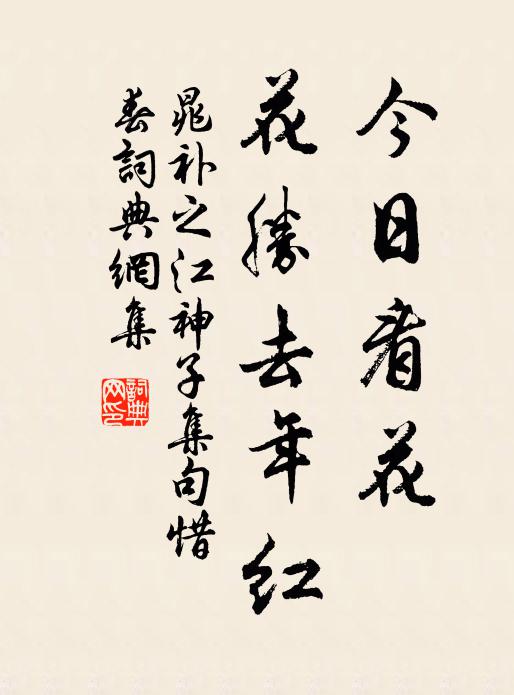 今日看花
花勝去年紅
晁补之江神子集句惜
春詞典網集
詞典网印